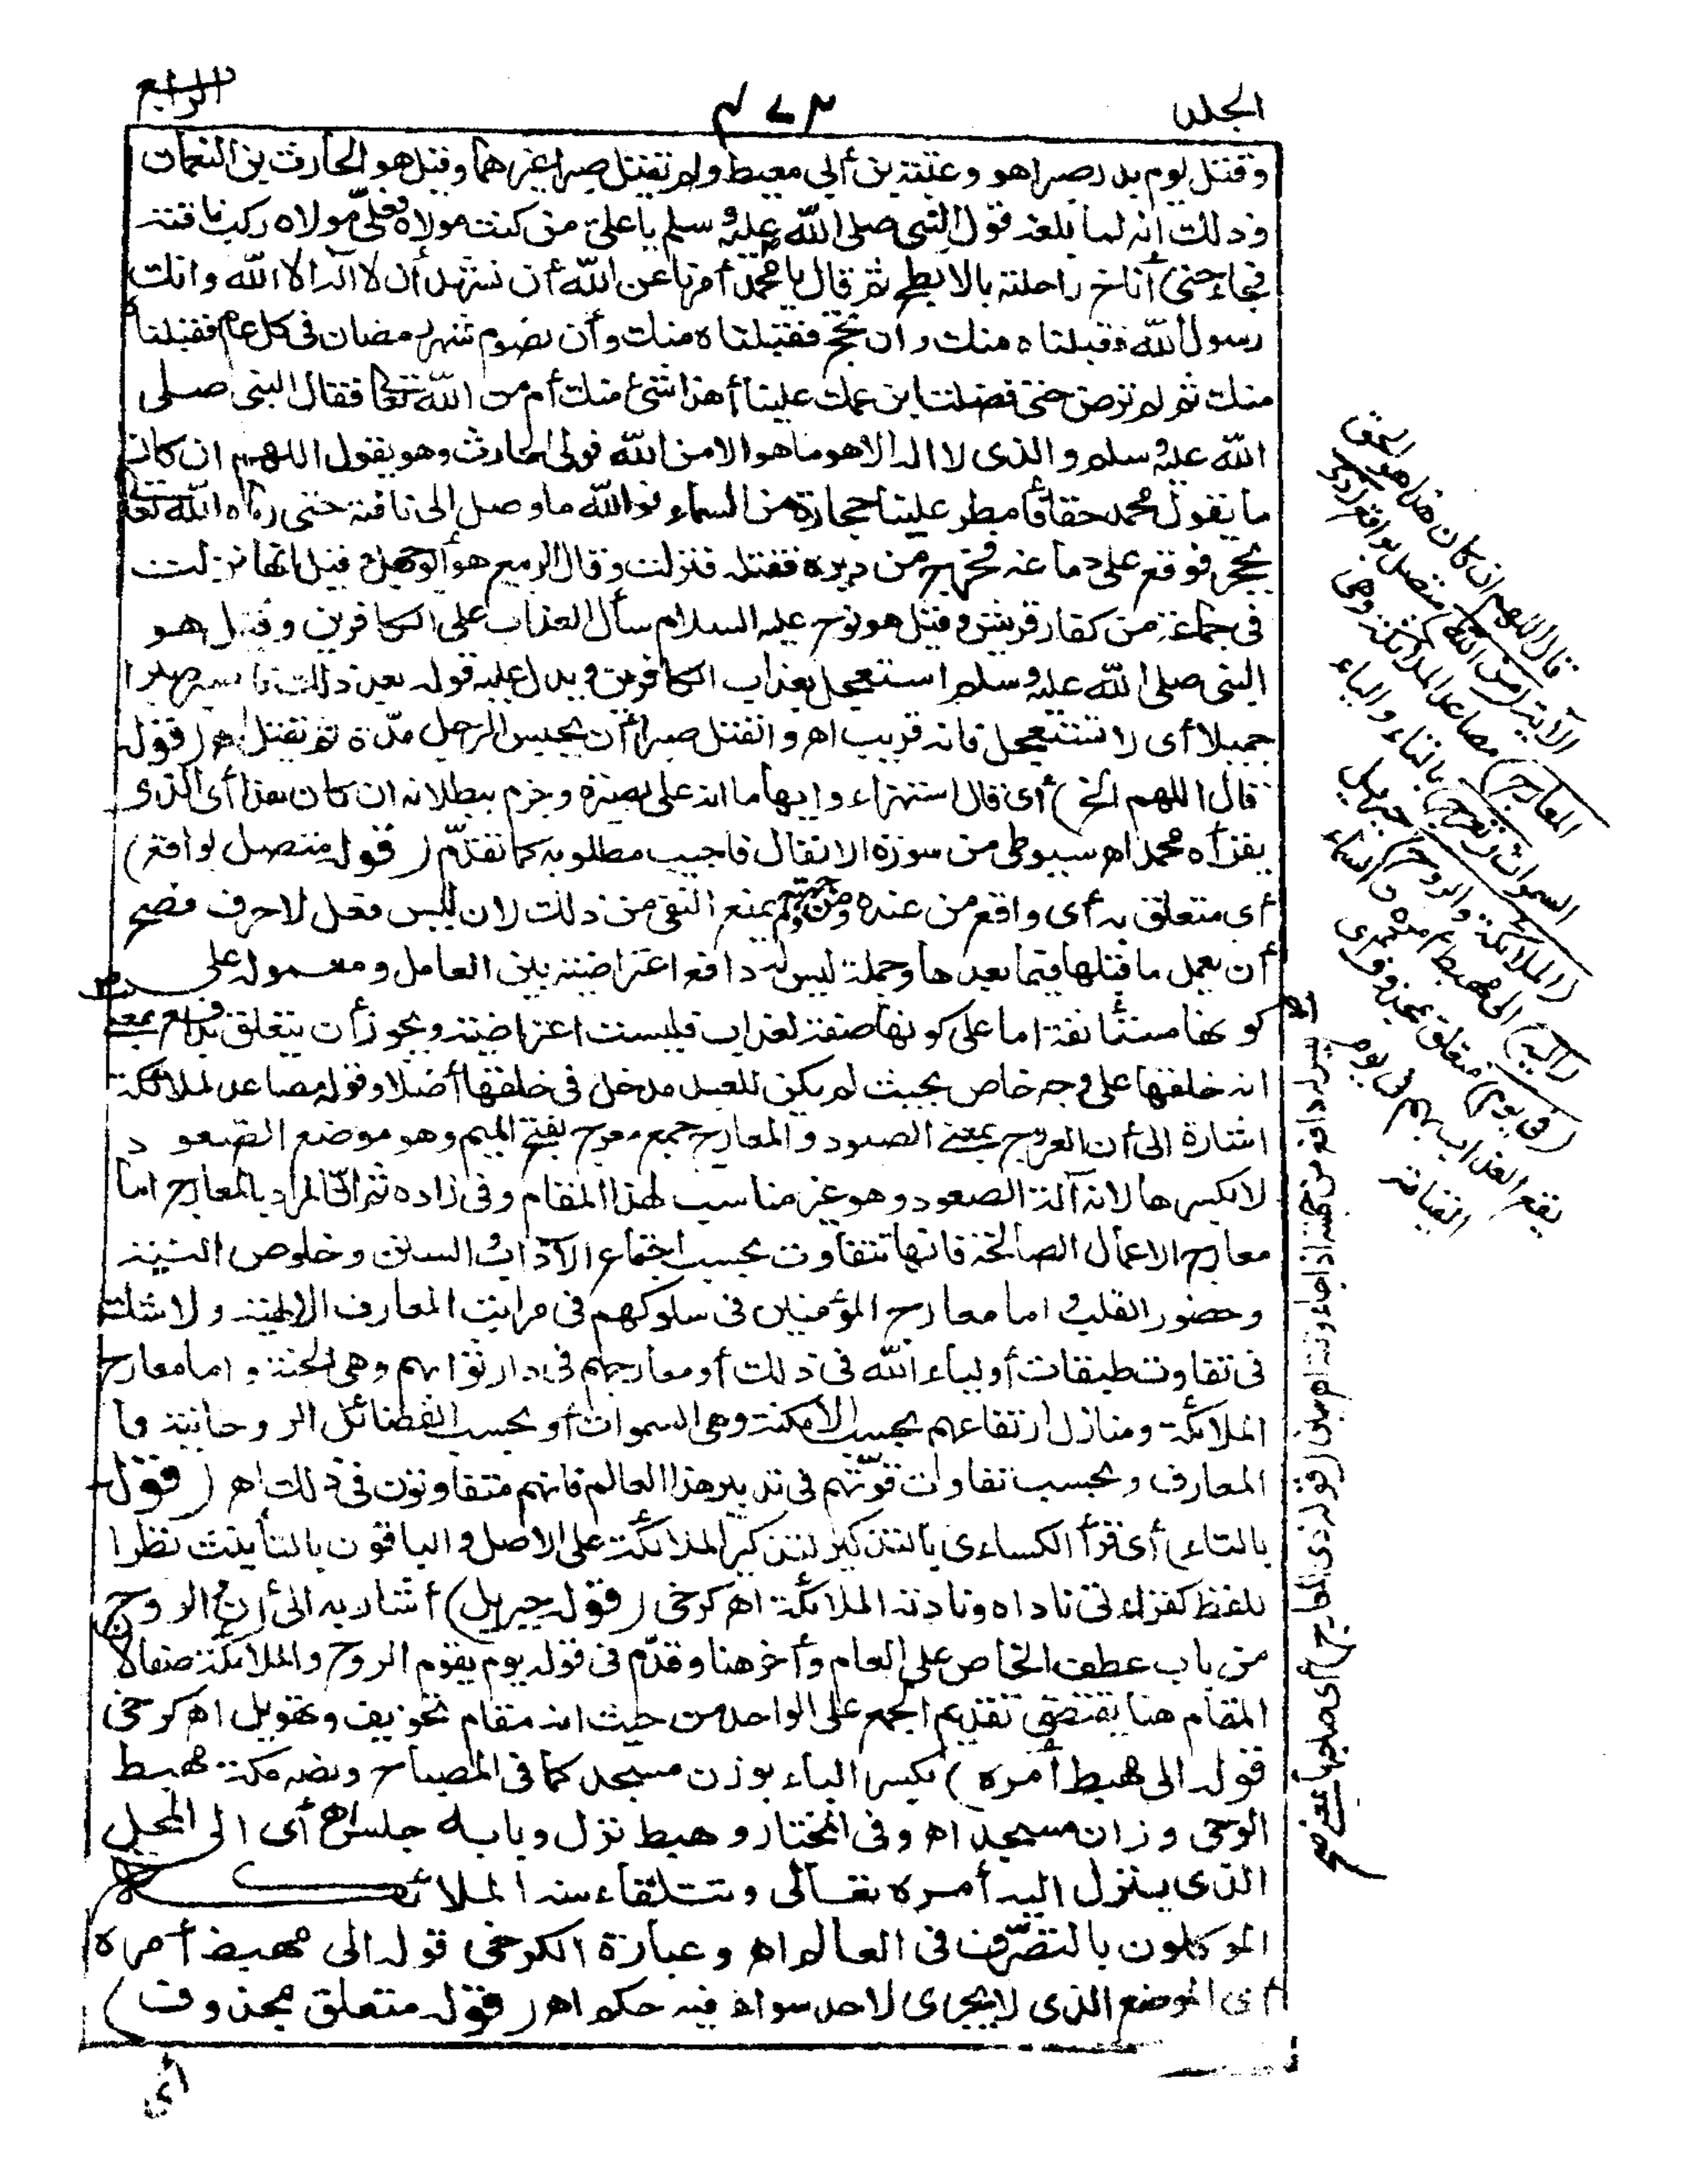 الجلد
٤٧٣
الرابع
وقتل يوم بدر صبرا هو وعقبة بن أبي معيط ولم يقتل صبرا غيرهما وقيل هو الحارث بن النعمان
وذلك انه لما بلغه قول النبي صلى الله عليه وسلم يا علي من كنت مولاه فعلي مولاه ركب ناقته
فجاء حتى أناخ راحلته بالابطح ثم قال يا محمد أمرتنا عن الله أن نشهد أن لا اله الا الله وانك
رسول الله فقبلناه منك وأن نحج فقبلناه منك وأن نصوم شهر رمضان في كل عام فقبلناه
منك ثم لم ترض حتى فضلت ابن عمك علينا أهذا شئ منك أم من الله تعالى فقال النبي صلى
الله عليه وسلم والذي لا اله الا هو ما هو الا من الله فولى الحارث وهو يقول اللهم ان كان
ما يقول محمد حقا فأمطر علينا حجارة من السماء فوالله ما وصل الى ناقته حتى رماه الله تعالى
بحجر فوقع على دماغه فخرج من دبره فقتله فنزلت وقال الربيع هو أبو جهل وقيل انها نزلت
في جماعة من كفار قريش وقيل هو نوح عليه السلام سأل العذاب على الكافرين وقيل هو
النبي صلى الله عليه وسلم استعجل بعذاب الكافرين ويدل عليه قوله بعد ذلك فاصبر صبرا
جميلا أي لا تستعجل فانه قريب اهـ والقتل صبرا أن يحبس الرجل مدة ثم يقتل اهـ (قوله
قال اللهم الخ) أي قال استهزاء وايهاما انه على بصيرة وجزم ببطلانه ان كان هذا أي الذي
يقرأه محمد اهـ سيوطي من سورة الانفال فاجيب مطلوبه كما تقدم (قوله متصل بواقع)
أي متعلق به أي واقع من عنده ومن جهته ولم يمنع النفي من ذلك لان ليس فعل لا حرف فصح
أن يعمل ما قبلها فيما بعدها وجملة ليس له دافع اعتراضية بين العامل ومعموله على
كونها مستأنفة اما على كونها صفة لعذاب فليست اعتراضية ويجوز أن يتعلق بدافع بمعنى
انه خلقها على وجه خاص بحيث لم يكن للعبد مدخل في خلقها أصلا وقوله مصاعد الملائكة
اشارة الى أن العروج بمعنى الصعود والمعارج جمع معرج بفتح الميم وهو موضع الصعود
لا بكسرها لانه آلة الصعود وهو غير مناسب لهذا المقام وفي زاده ثم ان المراد بالمعارج اما
معارج الاعمال الصالحة فانها تتفاوت بحسب اجتماع الآداب والسنن وخلوص النية
وحضور القلب واما معارج المؤمنين في سلوكهم في مراتب المعارف الالهية ولا شك
في تفاوت طبقات أولياء الله في ذلك أو معارجهم في دار ثوابهم وهي الجنة واما معارج
الملائكة ومنازل ارتفاعهم بحسب الأمكنة وهي السموات أو بحسب الفضائل الروحانية و
المعارف وبحسب تفاوت قوتهم في تدبير هذا العالم فانهم متفاوتون في ذلك اهـ (قوله
بالتاء) أي قرأ الكسائي بالتذكير لتذكير الملائكة على الاصل والباقون بالتأنيث نظرا
للفظ كقراءتي ناداه ونادته الملائكة اهـ كرخي (قوله جبريل) أشار به الى أن الروح
من باب عطف الخاص على العام وأخر هنا وقدم في قوله يوم يقوم الروح والملائكة صفا لان
المقام هنا يقتضي تقديم الجمع على الواحد من حيث انه مقام تخويف وتهويل اهـ كرخي
قوله الى مهبط أمره) بكسر الباء بوزن مسجد كما في المصباح ونصه مكة مهبط
الوحي وزان مسجد اهـ وفي المختار وهبط نزل وبابه جلس اهـ أي الى المحل
الذي ينزل اليه أمره تعالى وتتلقاه منه الملائكة
الموكلون بالتصرف في العالم اهـ وعبارة الكرخي قوله الى مهبط أمره
أي الموضع الذي لا يجري لاحد سواه فيه حكم اهـ (قوله متعلق بمحذوف)
أي
قال اللهم ان كان هذا هو الحق
الآية (من الله) متصل بواقع (ذي
المعارج) مصاعد الملائكة وهي
السموات (تعرج) بالتاء والياء
(الملائكة والروح) جبريل
(اليه) الى مهبط أمره من السماء
(في يوم) متعلق بمحذوف أي
يقع العذاب بهم في يوم
القيامة
ليس له دافع من جهته اذا جاء وقته اهـ (قوله ذي المعارج) أي صاحب